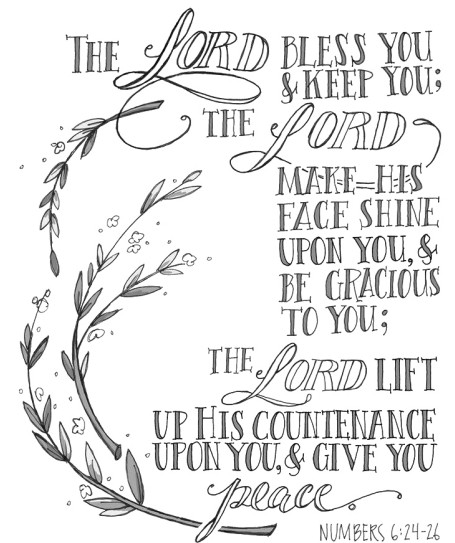 THE LORD BLESS YOU
& KEEP YOU;
THE LORD
MAKE HIS
FACE SHINE
UPON YOU, &
BE GRACIOUS
TO YOU;
THE LORD LIFT
UP HIS COUNTENANCE
UPON YOU, & GIVE YOU
peace.
NUMBERS 6:24-26